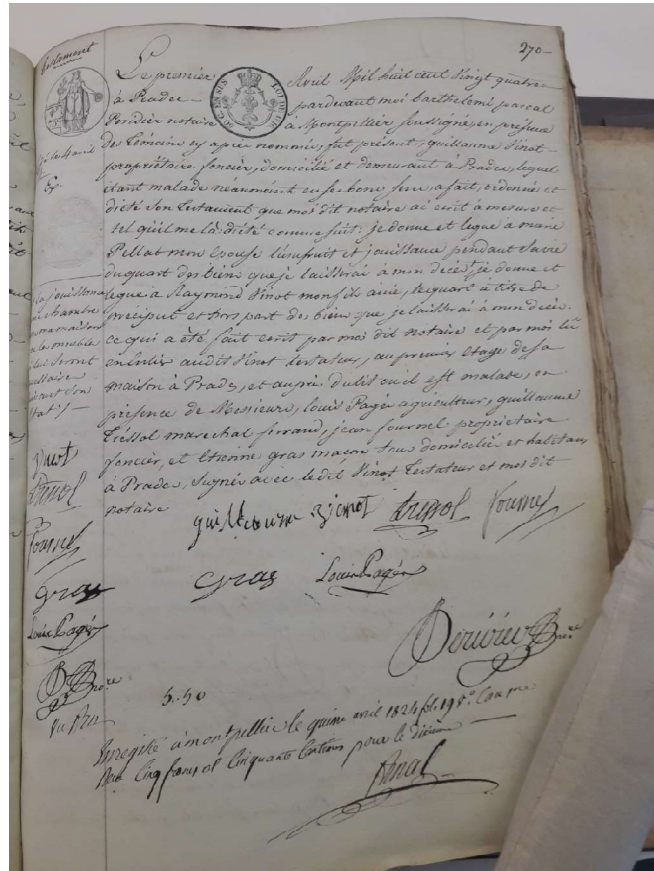 270
testament
Le premier Avril Mil huit cent vingt quatre
à Prades pardevant moi barthelemi pascal
notaire à Montpellier soussigné, en présence
des témoins cy après nommés, fut présent, guillaume Vinot
propriétaire foncier, domicilié et demeurant à Prades, lequel
étant malade néanmoins en ses bons sens, a fait, ordonné et
dicté son testament que moi dit notaire ai écrit à mesure et
tel qu'il me l'a dicté comme suit: je donne et legue à marie
Pellat mon épouse l'usufruit et jouissance pendant sa vie
du quart des biens que je laissérai à mon décès, je donne et
legue à Raymond Vinot mon fils ainé, le quart à titre de
préciput et hors part des biens que je laisserai à mon décès.
ce qui a été fait écrit par moi dit notaire et par moi lû
en entier audit Vinot testateur, au premier etage de sa
maison à Prades, et auprès du lit où il est malade, en
présence de Messieurs, louis Pagès agriculteur, guillaume
Tressol marechal ferrand, jean fournel propriétaire
foncier, et Etienne gras macon tous domiciliés et habitans
à Prades, signés avec ledit Vinot testateur et moi dit
notaire
la jouissance
chambre
ma maison
les meubles
qui seront
Vinot
tressol
fournel
gras
Louis Pagès
guillaume Vinot tressol fournel
gras Louis Pagès
5.50
Enregistré à montpellier le quinze avril 1824 fol. 198
Reçu cinq francs et cinquante centimes pour le dixième